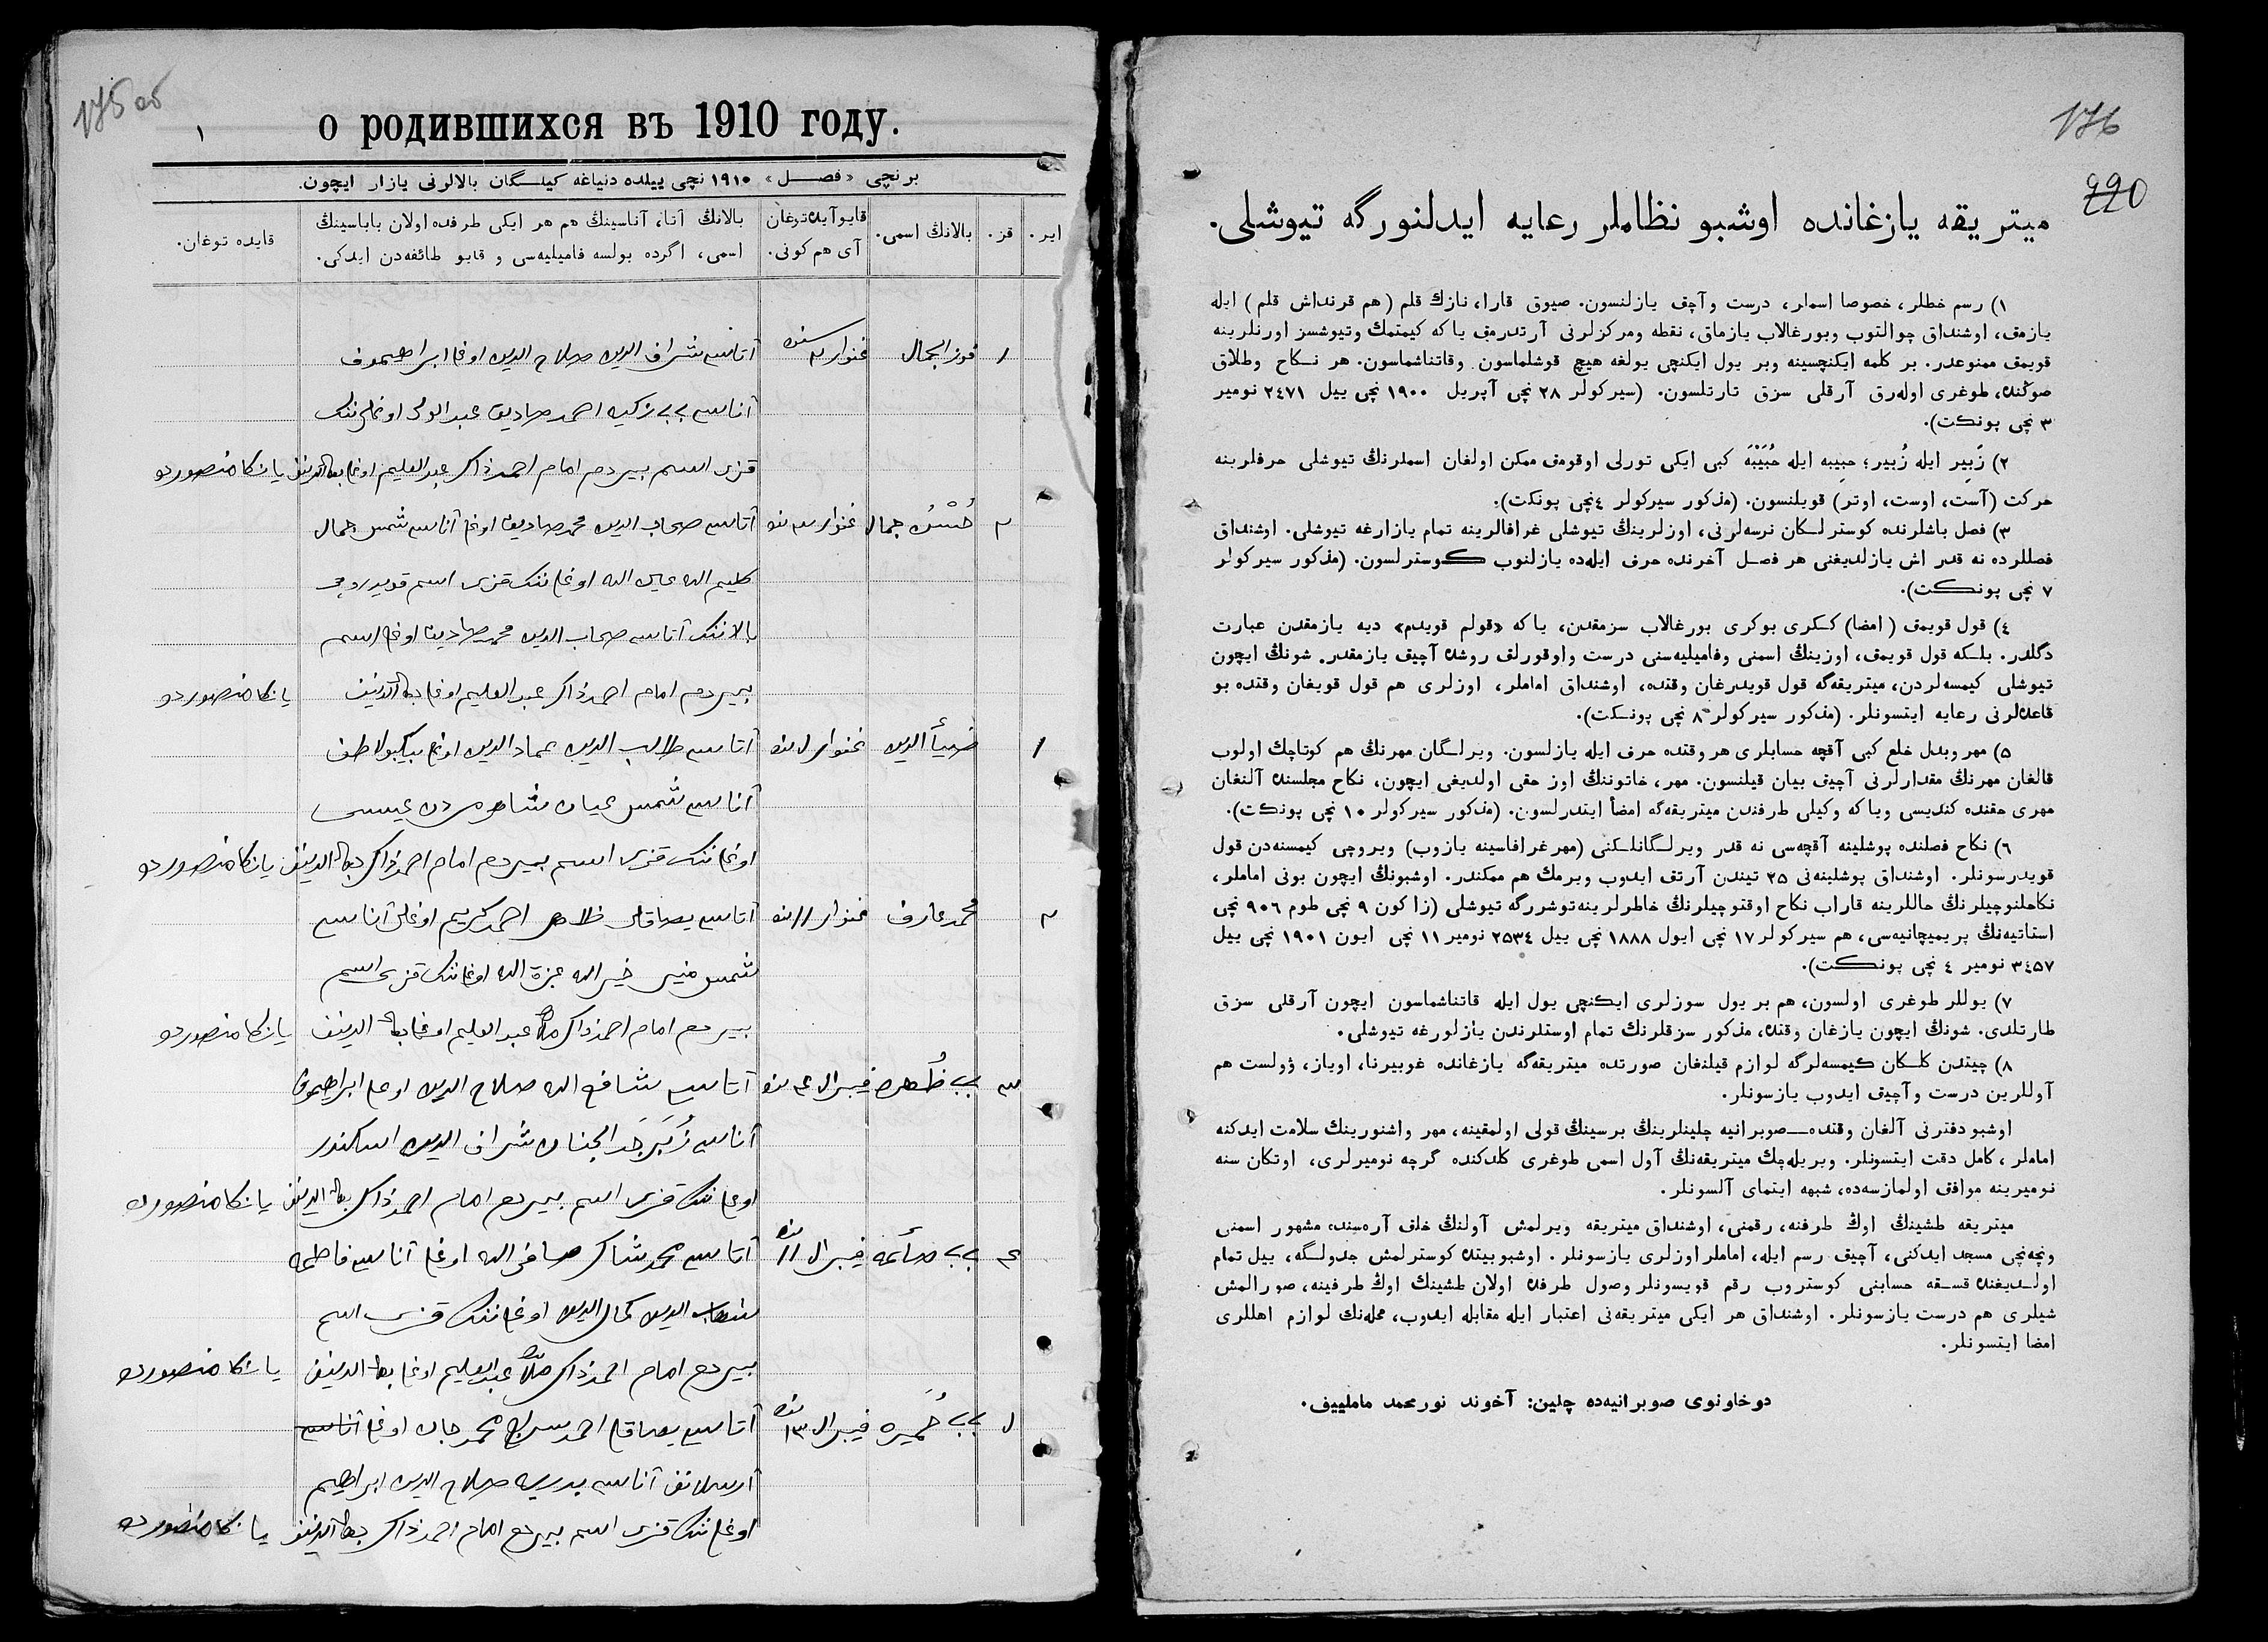 175 об
о родившихся въ 1910 году.
١
برنچی «فصل» ١٩١٠ نچی ییلده دنیاغه کیلگان بالالرنی یازار ایچون.
ایر.
قز.
بالانڭ اسمی.
قایو آیده توغان
آی هم کونی.
بالانڭ آتا، آناسینڭ هم هر ایکی طرفده اولان باباسینڭ
اسمی، اگرده بولسه فامیلیه‌سی و قایو طائفه‌دن ایدکی.
قایده توغان.
١ فوز الجمال غنوار ٢ آتاسی شراف الدین صلاح الدین اوغلی ابراهیموف
آناسی بی بی زکیه احمد صادیق عبد الولی اوغلی ننک
قزی اسم بیردم امام احمد ذاکر عبد العلیم اوغلی یانکا منصورده
٢ حسن جمال غنوار آتاسی صحاب الدین محمد صادیق اوغلی آناسی شمس جمال
کلیم الله اوغلی ننک قزی اسم
بالاننک آتاسی صحاب الدین محمد صادیق اوغلی اسم
بیردم امام احمد ذاکر عبد العلیم اوغلی یانکا منصورده
١ ضیأ الدین غنوار آتاسی طالب الدین عماد الدین اوغلی
آناسی شمس عیان شاه مردان عیسی
اوغلی ننک قزی اسم بیردم امام احمد ذاکر یانکا منصورده
٢ محمد عارف غنوار ١١ آتاسی احمد کریم اوغلی آناسی
شمس منیر خیر الله عزة الله اوغلی ننک قزی اسم
بیردم امام احمد ذاکر ملا عبد العلیم اوغلی یانکا منصورده
٣ بی بی ظهره فیبرال آتاسی شافع الله صلاح الدین اوغلی ابراهیموف
آناسی زبرجد الجنان شراف الدین اسکندر
اوغلی ننک قزی اسم بیردم امام احمد ذاکر یانکا منصورده
٤ بی بی صائمه فیبرال ١١ آتاسی محمد شاکر صافی الله اوغلی آناسی فاطمه
شهاب الدین کمال الدین اوغلی ننک قزی اسم
بیردم امام احمد ذاکر ملا عبد العلیم اوغلی یانکا منصورده
بی بی حمیره فیبرال ١٣ آتاسی احمد سراج محمد جان اوغلی آناسی
آرسلانف آناسی بدریه صلاح الدین ابراهیم
اوغلی ننک قزی اسم بیردم امام احمد ذاکر یانکا منصورده
176
220
میتریقه یازغانده اوشبو نظاملر رعایه ایدلنورگه تیوشلی.
١) رسم خطلر، خصوصا اسملر، درست وآچق یازلنسون. صیوق قارا، نازك قلم (هم قرنداش قلم) ایله
یازمق، اوشنداق چوالتوب وبورغالاب یازماق، نقطه ومرکزلرنی آرتدرمق یا که کیمتمك وتیوشسز اورنلرینه
قویمق ممنوعدر. بر کلمه ایکنچسینه وبر یول ایکنچی یولغه هیچ قوشلماسون وقاتناشماسون. هر نکاح وطلاق
صوڭنده، طوغری اوله‌رق آرقلی سزق تارتلسون. (سیرکولر ٢٨ نچی آپریل ١٩٠٠ نچی ییل ٢٤٧١ نومیر
٣ نچی پونکت).
٢) زَبِیر ایله زُبیر؛ حبِیبه ایله حُبَیْبَه کبی ایکی تورلی اوقومق ممکن اولغان اسملرنڭ تیوشلی حرفلرینه
حرکت (آست، اوست، اوتر) قویلنسون. (مذکور سیرکولر ٤ نچی پونکت).
٣) فصل باشلرنده کوسترلگان نرسه‌لرنی، اوزلرینڭ تیوشلی غرافالرینه تمام یازارغه تیوشلی. اوشنداق
فصللرده نه قدر اش یازلدیغنی هر فصل آخرنده حرف ایله‌ده یازلنوب کوسترلسون. (مذکور سیرکولر
٧ نچی پونکت).
٤) قول قویمق (امضا) ککری بوکری بورغالاب سزمقدن، یا که «قولم قویدم» دیه یازمقدن عبارت
دگلدر. بلکه قول قویمق، اوزینڭ اسمنی وفامیلیه‌سنی درست واوقورلق روشده آچیق یازمقدر. شونڭ ایچون
تیوشلی کیمسه‌لردن، میتریقه‌گه قول قویدرغان وقتده، اوشنداق اماملر، اوزلری هم قول قویغان وقتده بو
قاعده‌لرنی رعایه ایتسونلر. (مذکور سیرکولر ٨ نچی پونکت).
٥) مهر وبدل خلع کبی آقچه حسابلری هر وقتده حرف ایله یازلسون. ویرلگان مهرنڭ هم کوتاچك اولوب
قالغان مهرنڭ مقدارلرنی آچیق بیان قیلنسون. مهر، خاتوننڭ اوز حقی اولدیغی ایچون، نکاح مجلسنده آلنغان
مهری حقنده کندیسی ویا که وکیلی طرفندن میتریقه‌گه امضأ ایتدرلسون. (مذکور سیرکولر ١٠ نچی پونکت).
٦) نکاح فصلنده پوشلینه آقچه‌سی نه قدر ویرلگانلکنی (مهر غرافاسینه یازوب) ویروچی کیمسنه‌دن قول
قویدرسونلر. اوشنداق پوشلینه‌نی ٢٥ تیندن آرتق ایدوب ویرمك هم ممکندر. اوشبونڭ ایچون بونی اماملر،
نکاحلنوچیلرنڭ حاللرینه قاراب نکاح اوقتوچیلرنڭ خاطرلرینه توشررگه تیوشلی (زاکون ٩ نچی طوم ٩٠٦ نچی
استاتیه‌نڭ پریمیچانیه‌سی، هم سیرکولر ١٧ نچی ایول ١٨٨٨ نچی ییل ٢٥٣٤ نومیر ١١ نچی ایون ١٩٠١ نچی ییل
٣٤٥٧ نومیر ٤ نچی پونکت).
٧) یوللر طوغری اولسون، هم بر یول سوزلری ایکنچی یول ایله قاتناشماسون ایچون آرقلی سزق
طارتلدی. شونڭ ایچون یازغان وقتده، مذکور سزقلرنڭ تمام اوستلرندن یازلورغه تیوشلی.
٨) چیتدن کلگان کیمسه‌لرگه لوازم قیلنغان صورتده میتریقه‌گه یازغانده غوبیرنا، اویاز، ؤولست هم
آوللرین درست وآچیق ایدوب یازسونلر.
اوشبو دفترنی آلغان وقتده—صوبرانیه چلینلرینڭ برسینڭ قولی اولمقینه، مهر واشنورینڭ سلامت ایدکنه
اماملر، کامل دقت ایتسونلر. ویریله‌چك میتریقه‌نڭ آول اسمی طوغری کلدکنده گرچه نومیرلری، اوتکان سنه
نومیرینه موافق اولمازسه‌ده، شبهه ایتمای آلسونلر.
میتریقه طشینڭ اوڭ طرفنه، رقمنی، اوشنداق میتریقه ویرلمش آولنڭ خلق آره‌سنده مشهور اسمنی
ونچه‌نچی مسجد ایدکنی، آچیق رسم ایله، اماملر اوزلری یازسونلر. اوشبو بیتده کوسترلمش جدولگه، ییل تمام
اولدیغنده قسقه حسابنی کوستروب رقم قویسونلر وصول طرفده اولان طشینڭ اوڭ طرفینه، صورالمش
شیلری هم درست یازسونلر. اوشنداق هر ایکی میتریقه‌نی اعتبار ایله مقابله ایدوب، محله‌نڭ لوازم اهللری
امضا ایتسونلر.
دوخاونوی صوبرانیه‌ده چلین: آخوند نورمحمد ماملییف.